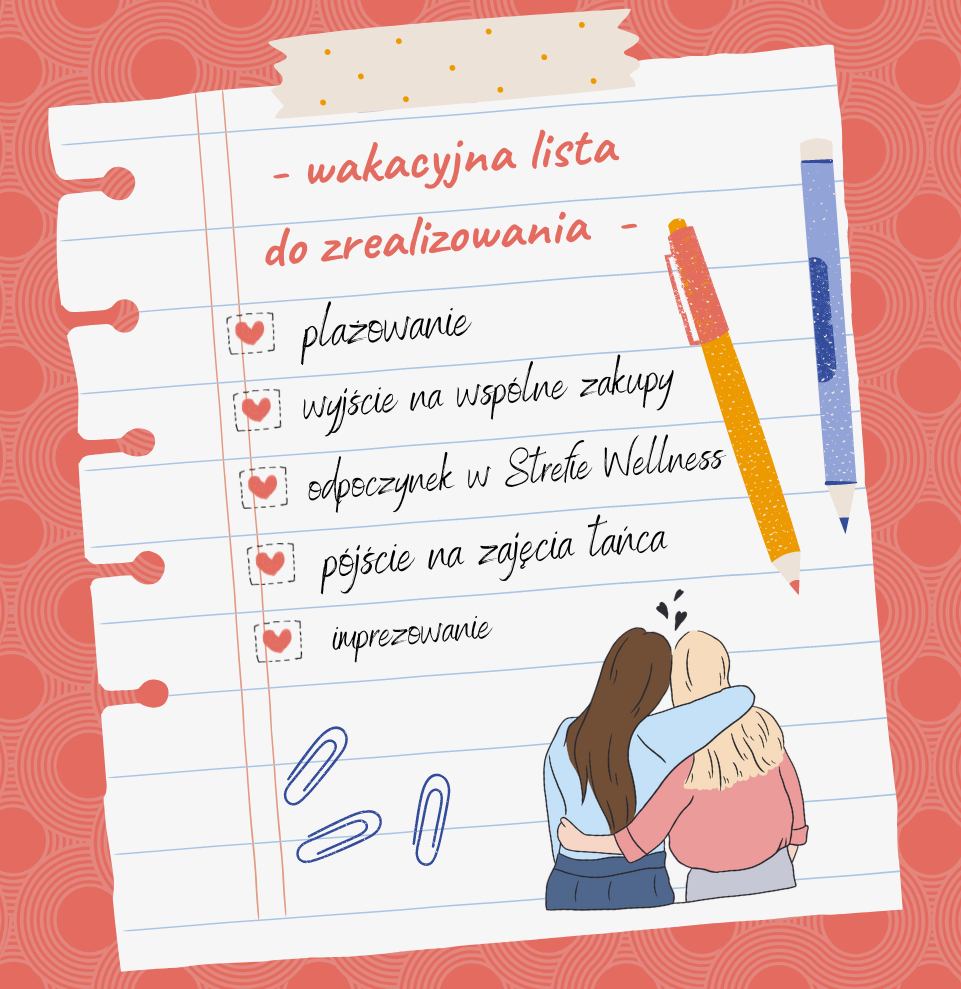 - wakacyjna lista
do zrealizowania -
plażowanie
wyjście na wspólne zakupy
odpoczynek w Strefie Wellness
pójście na zajęcia tańca
imprezowanie